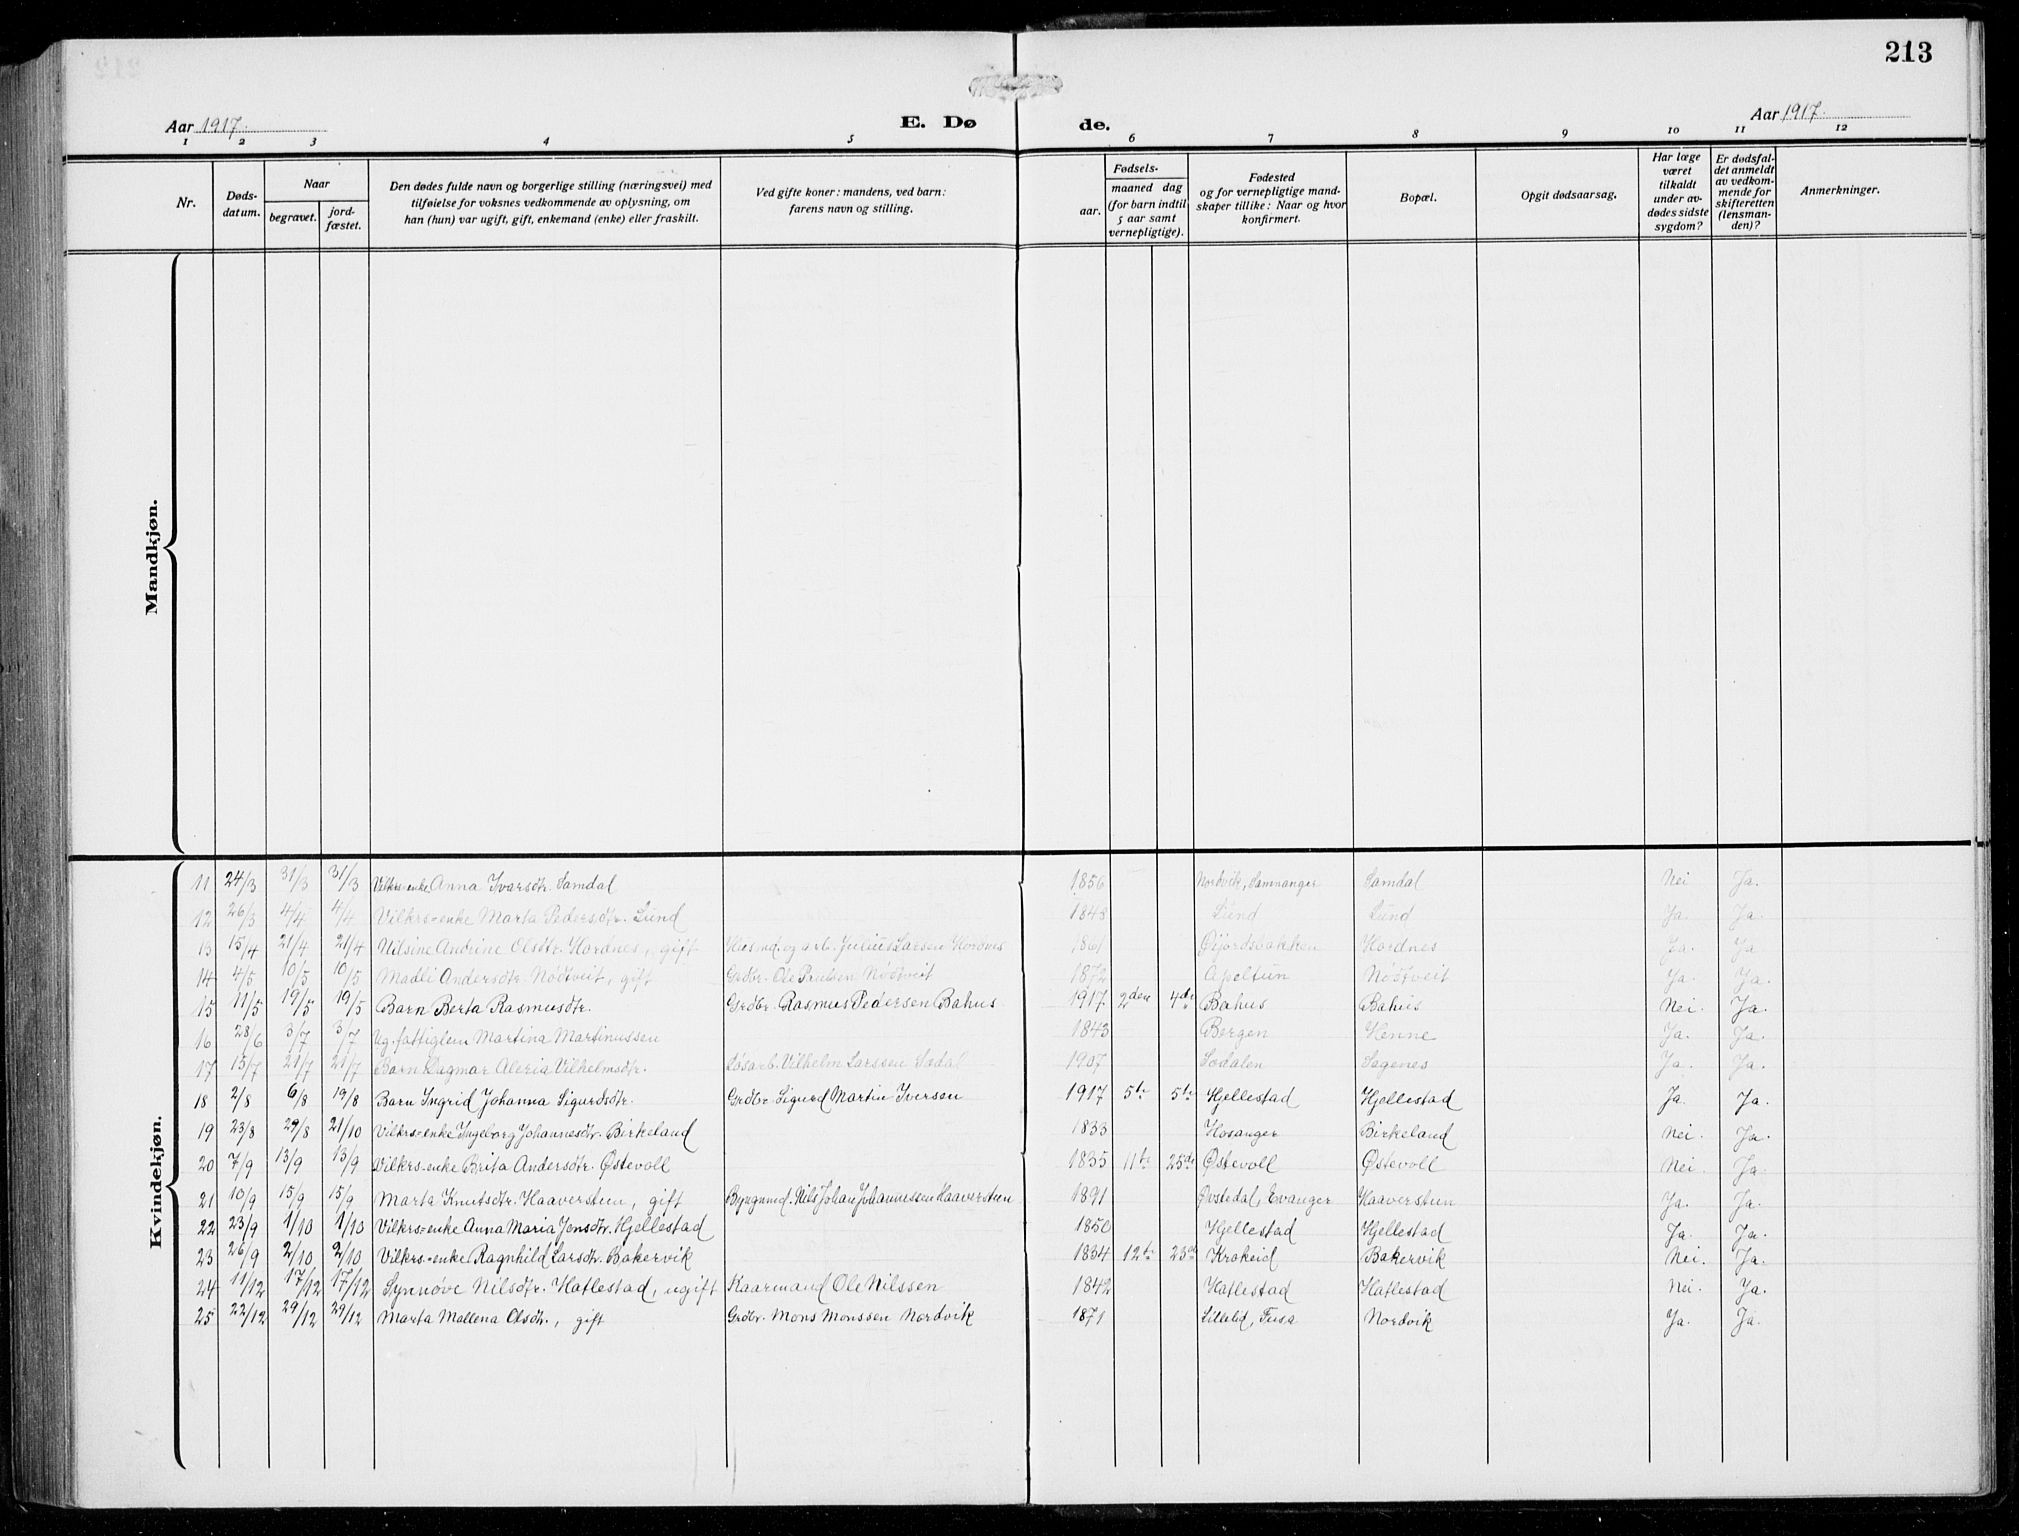 213
Aar 1917.
E. Dø
de.
Aar 1917.
1 2 3 4 5 6 7 8 9 10 11 12
Nr.
Døds-
datum.
Naar
begravet.
jord-
fæstet.
Den dødes fulde navn og borgerlige stilling (næringsvei) med
tilføielse for voksnes vedkommende av oplysning, om
han (hun) var ugift, gift, enkemand (enke) eller fraskilt.
Ved gifte koner: mandens, ved barn:
farens navn og stilling.
Fødsels-
aar.
maaned dag
(for barn indtil
5 aar samt
vernepligtige).
Fødested
og for vernepligtige mand-
skaper tillike: Naar og hvor
konfirmert.
Bopæl.
Opgit dødsaarsag.
Har læge
været
tilkaldt
under av-
dødes sidste
sygdom?
Er dødsfal-
det anmeldt
av vedkom-
mende for
skifteretten
(lensman-
den)?
Anmerkninger.
Mandkjøn.
Kvindekjøn.
11 24/3 31/3 31/3 Vilkrs-enke Anna Ivarsdtr. Samdal 1856 Nordvik, Samnanger Samdal Nei Ja.
12 26/3 4/4 4/4 Vilkrs-enke Marta Pedersdtr. Lund 1848 Lund Lund Ja. Ja.
13 15/4 21/4 21/4 Nilsine Andrine Olsdtr. Hordnes, gift Husmd. og arb. Julius Larsen Hordnes 1861 Øijordsbakken Hordnes Ja. Ja
14 4/5 10/5 10/5 Madli Andersdtr. Nödtveit, gift Grdbr. Ole Paulsen Nödtveit 1872 Apeltun Nödtveit Ja. Ja.
15 11/5 19/5 19/5 Barn Berta Rasmusdtr. Grdbr. Rasmus Pedersen Bahus 1917 2den 4de Bahus Bahus Nei. Ja.
16 28/6 3/7 3/7 Ug. fattiglem Martina Martinussen 1843 Bergen Henne Ja. Ja.
17 15/7 21/7 21/7 Barn Dagmar Aleria Vilhelmsdtr. Løsarb. Vilhelm Larssen Sædal 1907 Sædalen Sagenes Ja. Ja.
18 2/8 6/8 19/8 Barn Ingrid Johanna Sigurdsdtr. Grdbr. Sigurd Martin Iversen 1917 5te 5te Hjellestad Hjellestad Ja. Ja.
19 23/8 29/8 21/10 Vilkrs-enke Ingeborg Johannesdtr. Birkeland 1833 Hosanger Birkeland Nei. Ja.
20 7/9 13/9 13/9 Vilkrs-enke Brita Andersdtr. Østevoll 1835 11te 25de Østevoll Østevoll Nei. Ja.
21 10/9 15/9 15/9 Marta Knutsdtr. Haaverstun, gift Bygnmd. Nils Johan Johannessen Haaverstun 1891 Øvstedal, Evanger Haaverstun Ja. Ja.
22 23/9 1/10 1/10 Vilkrs-enke Anna Maria Jonsdtr. Hjellestad 1850 Hjellestad Hjellestad Ja. Ja.
23 26/9 2/10 2/10 Vilkrs-enke Ragnhild Larsdtr. Bakervik 1834 12te 23de Krokeid Bakervik Nei. Ja.
24 11/12 17/12 17/12 Synnøve Nilsdtr. Hatlestad, ugift Kaarmand Ole Nilssen 1842 Hatlestad Hatlestad Nei. Ja.
25 22/12 29/12 29/12 Marta Mallena Olsdtr., gift Grdbr. Mons Monssen Nordvik 1871 Fusa Nordvik Ja. Ja.